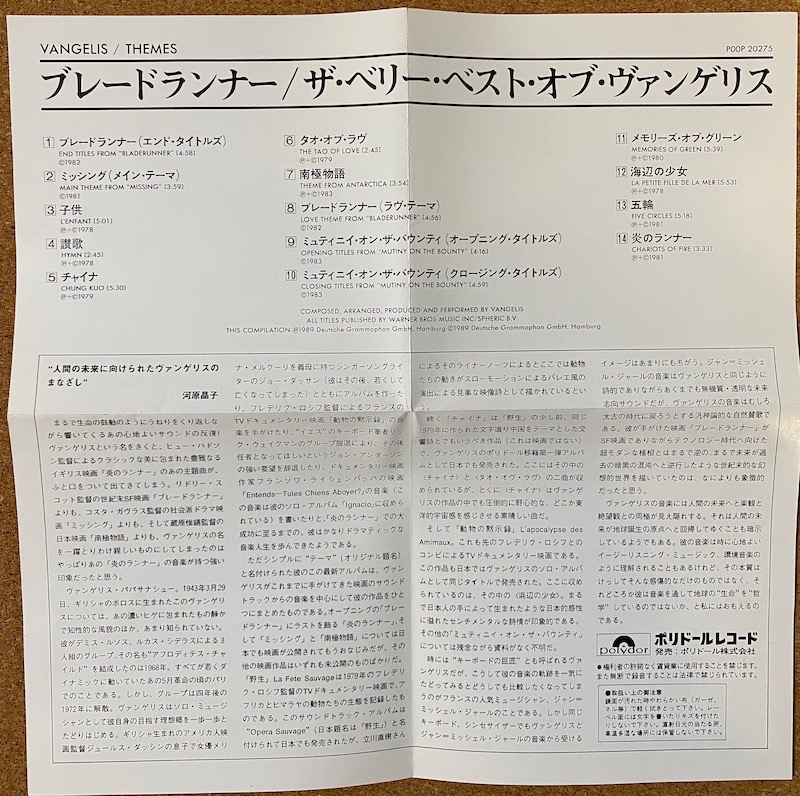 VANGELIS / THEMES
POOP 20275
ブレードランナー/ザ・ベリー・ベスト・オブ・ヴァンゲリス
1 ブレードランナー(エンド・タイトルズ)
END TITLES FROM "BLADERUNNER" [4:58]
©1982
2 ミッシング(メイン・テーマ)
MAIN THEME FROM "MISSING" [3:59]
©1981
3 子供
L'ENFANT [5:01]
℗+©1978
4 讃歌
HYMN [2:45]
℗+©1978
5 チャイナ
CHUNG KUO [5:30]
℗+©1979
6 タオ・オブ・ラヴ
THE TAO OF LOVE [2:45]
℗+©1979
7 南極物語
THEME FROM ANTARCTICA [3:54]
℗+©1983
8 ブレードランナー(ラヴ・テーマ)
LOVE THEME FROM "BLADERUNNER" [4:56]
©1982
9 ミュティニイ・オン・ザ・バウンティ(オープニング・タイトルズ)
OPENING TITLES FROM "MUTINY ON THE BOUNTY" [4:16]
©1983
10 ミュティニイ・オン・ザ・バウンティ(クロージング・タイトルズ)
CLOSING TITLES FROM "MUTINY ON THE BOUNTY" [4:59]
©1983
11 メモリーズ・オブ・グリーン
MEMORIES OF GREEN [5:39]
℗+©1980
12 海辺の少女
LA PETITE FILLE DE LA MER [5:53]
℗+©1978
13 五輪
FIVE CIRCLES [5:18]
℗+©1981
14 炎のランナー
CHARIOTS OF FIRE [3:33]
℗+©1981
COMPOSED, ARRANGED, PRODUCED AND PERFORMED BY VANGELIS
ALL TITLES PUBLISHED BY WARNER BROS MUSIC INC/SPHERIC B.V.
THIS COMPILATION ℗1989 Deutsche Grammophon GmbH, Hamburg ©1989 Deutsche Grammophon GmbH, Hamburg
"人間の未来に向けられたヴァンゲリスの
まなざし"
河原晶子
まるで生命の鼓動のようにうねりをくり返しな
がら響いてくるあの心地よいサウンドの反復!
ヴァンゲリスという名をきくと、ヒュー・ハドソ
ン監督によるクラシックな美に包まれた豊雅なる
イギリス映画「炎のランナー」のあの主題曲が、
ふと口をついて出てきてしまう。リドリー・ス
コット監督の世紀末SF映画「ブレードランナー」
よりも、コスタ・ガヴラス監督の社会派ドラマ映
画「ミッシング」よりも、そして蔵原惟繕監督の
日本映画「南極物語」よりも、ヴァンゲリスの名
を一躍とりわけ親しいものにしてしまったのは
やっぱりあの「炎のランナー」の音楽が持つ強い
印象だったと思う。
ヴァンゲリス・パパサナシュー。1943年3月29
日、ギリシャのボロスに生まれたこのヴァンゲリ
スについては、あの濃いヒゲに包まれたもの静か
で知的な風貌のほか、あまり知られていない。
彼がデミス・ルソス、ルカス・シデラスによる3
人組のグループ、その名も"アフロディテス・チャ
イルド"を結成したのは1968年。すべてが若くダ
イナミックに動いていたあの5月革命の頃のパリ
でのことである。しかし、グループは四年後の
1972年に解散。ヴァンゲリスはソロ・ミュージ
シャンとして彼自身の目指す理想郷を一歩一歩と
たどりはじめる。ギリシャ生まれのアメリカ人映
画監督ジュールス・ダッシンの息子で女優メリ
ナ・メルクーリを義母に持つシンガーソングライ
ターのジョー・ダッサン(彼はその後、若くして
亡くなってしまった)とともにアルバムを作った
り、フレデリク・ロシフ監督によるフランスの
TVドキュメンタリー映画「動物の黙示録」の音
楽を手がけたり、"イエス"のキーボード奏者リッ
ク・ウェイクマンのグループ脱退により、その後
任者となってほしいというジョン・アンダーソン
の強い要望を辞退したり、ドキュメンタリー映画
作家フランソワ・ライシェンバッハの映画
「Entends—Tules Chiens Aboyer?」の音楽(こ
の音楽は彼のソロ・アルバム「Ignacio」に収めら
れている)を書いたりと、「炎のランナー」での大
成功に至るまでの、彼はかなりドラマティックな
音楽人生を歩んできたようである。
ただシンプルに"テーマ"(オリジナル題名)
と名付けられた彼のこの最新アルバムは、ヴァン
ゲリスがこれまでに手がけてきた映画のサウンド
トラックからの音楽を中心にして彼の作品をひと
つにまとめたものである。オープニングの「ブレー
ドランナー」にラストを飾る「炎のランナー」、そ
して「ミッシング」と「南極物語」については日
本でも映画が公開されてもうおなじみだが、その
他の映画作品はいずれも未公開のものばかりだ。
「野生」La Fete Sauvageは1979年のフレデリ
ク・ロシフ監督のTVドキュメンタリー映画で、ア
フリカとヒマラヤの動物たちの生態を記録したも
のである。このサウンドトラック・アルバムは
"Opera Sauvage"(日本題名は「野生」)と名
付けられて日本でも発売されたが、立川直樹さん
によるそのライナーノーツによるとここでは動物
たちの動きがスローモーションによるバレエ風の
演出による見事な映像詩として描かれているとい
う。
続く「チャイナ」は「野生」の少し前、同じ
1979年に作られた文字通り中国をテーマとした交
響詩とでもいうべき作品(これは映画ではない)
で、ヴァンゲリスのポリドール移籍第一弾アルバ
ムとして日本でも発売された。ここにはその中の
〈チャイナ〉と〈タオ・オブ・ラヴ〉の二曲が収
められているが、とくに〈チャイナ〉はヴァンゲリ
スの作品の中でも圧倒的に野心的な、どこか東
洋的宇宙感を感じさせる素晴しい曲だ。
そして「動物の黙示録」L'apocalypse des
Amimaux。これも先のフレデリク・ロシフとの
コンビによるTVドキュメンタリー映画である。こ
の作品も日本ではヴァンゲリスのソロ・アルバム
として同じタイトルで発売された。ここに収めら
れているのは、その中の〈浜辺の少女〉。まる
で日本人の手によって生まれたような日本的感性
に溢れたセンチメンタルな詩情が印象的である。
その他の「ミュティニイ・オン・ザ・バウンティ」
については残念ながら資料がなく不明だ。
時には"キーボードの巨匠"とも呼ばれるヴァ
ンゲリスだが、こうして彼の音楽の軌跡を一気に
たどってみるとどうしても比較したくなってしま
うのがフランスの人気ミュージシャン、ジャン=
ミッシェル・ジャールのことである。しかし同じ
キーボード、シンセサイザーでもヴァンゲリスと
ジャン=ミッシェル・ジャールの音楽から受ける
イメージはあまりにもちがう。ジャン=ミッシェ
ル・ジャールの音楽はヴァンゲリスと同じように
詩的でありながらあくまでも無機質・透明な未来
志向サウンドだが、ヴァンゲリスの音楽はむしろ
太古の時代に戻ろうとする汎神論的な自然賛歌で
ある。彼が手がけた映画「ブレードランナー」が
SF映画でありながらテクノロジー時代へ向けた
超モダンな様相とはまるで逆の、まるで未来が過
去の暗黒の混沌へと逆行したような世紀末的な幻
想的世界を描いていたのは、なによりも象徴的
だったと思う。
ヴァンゲリスの音楽には人間の未来へと楽観と
絶望観との両極が見え隠れする。それは人間の未
来が地球誕生の原点へと回帰してゆくことも暗示
しているようでもある。彼の音楽は時に心地よい
イージーリスニング・ミュージック、環境音楽の
ように理解されることもあるけれど、その本質は
けっしてそんな感傷的なだけのものではなく、そ
れどころか彼は音楽を通して地球の"生命"を"哲
学"しているのではないか、と私にはおもえるの
である。
polydor
ポリドールレコード
発売:ポリドール株式会社
●権利者の許諾なく賃貸業に使用することを禁じます。
また無断で録音することは法律で禁じられています。
●取扱い上の御注意
鏡面が汚れた時やわらかい布(ガーゼ、
ネル等)で軽く拭きとって下さい。レー
ベル面には文字を書いたりキズを付けた
りしないで下さい。直射日光の当たる所、
高温多湿な場所には保管しないで下さい。